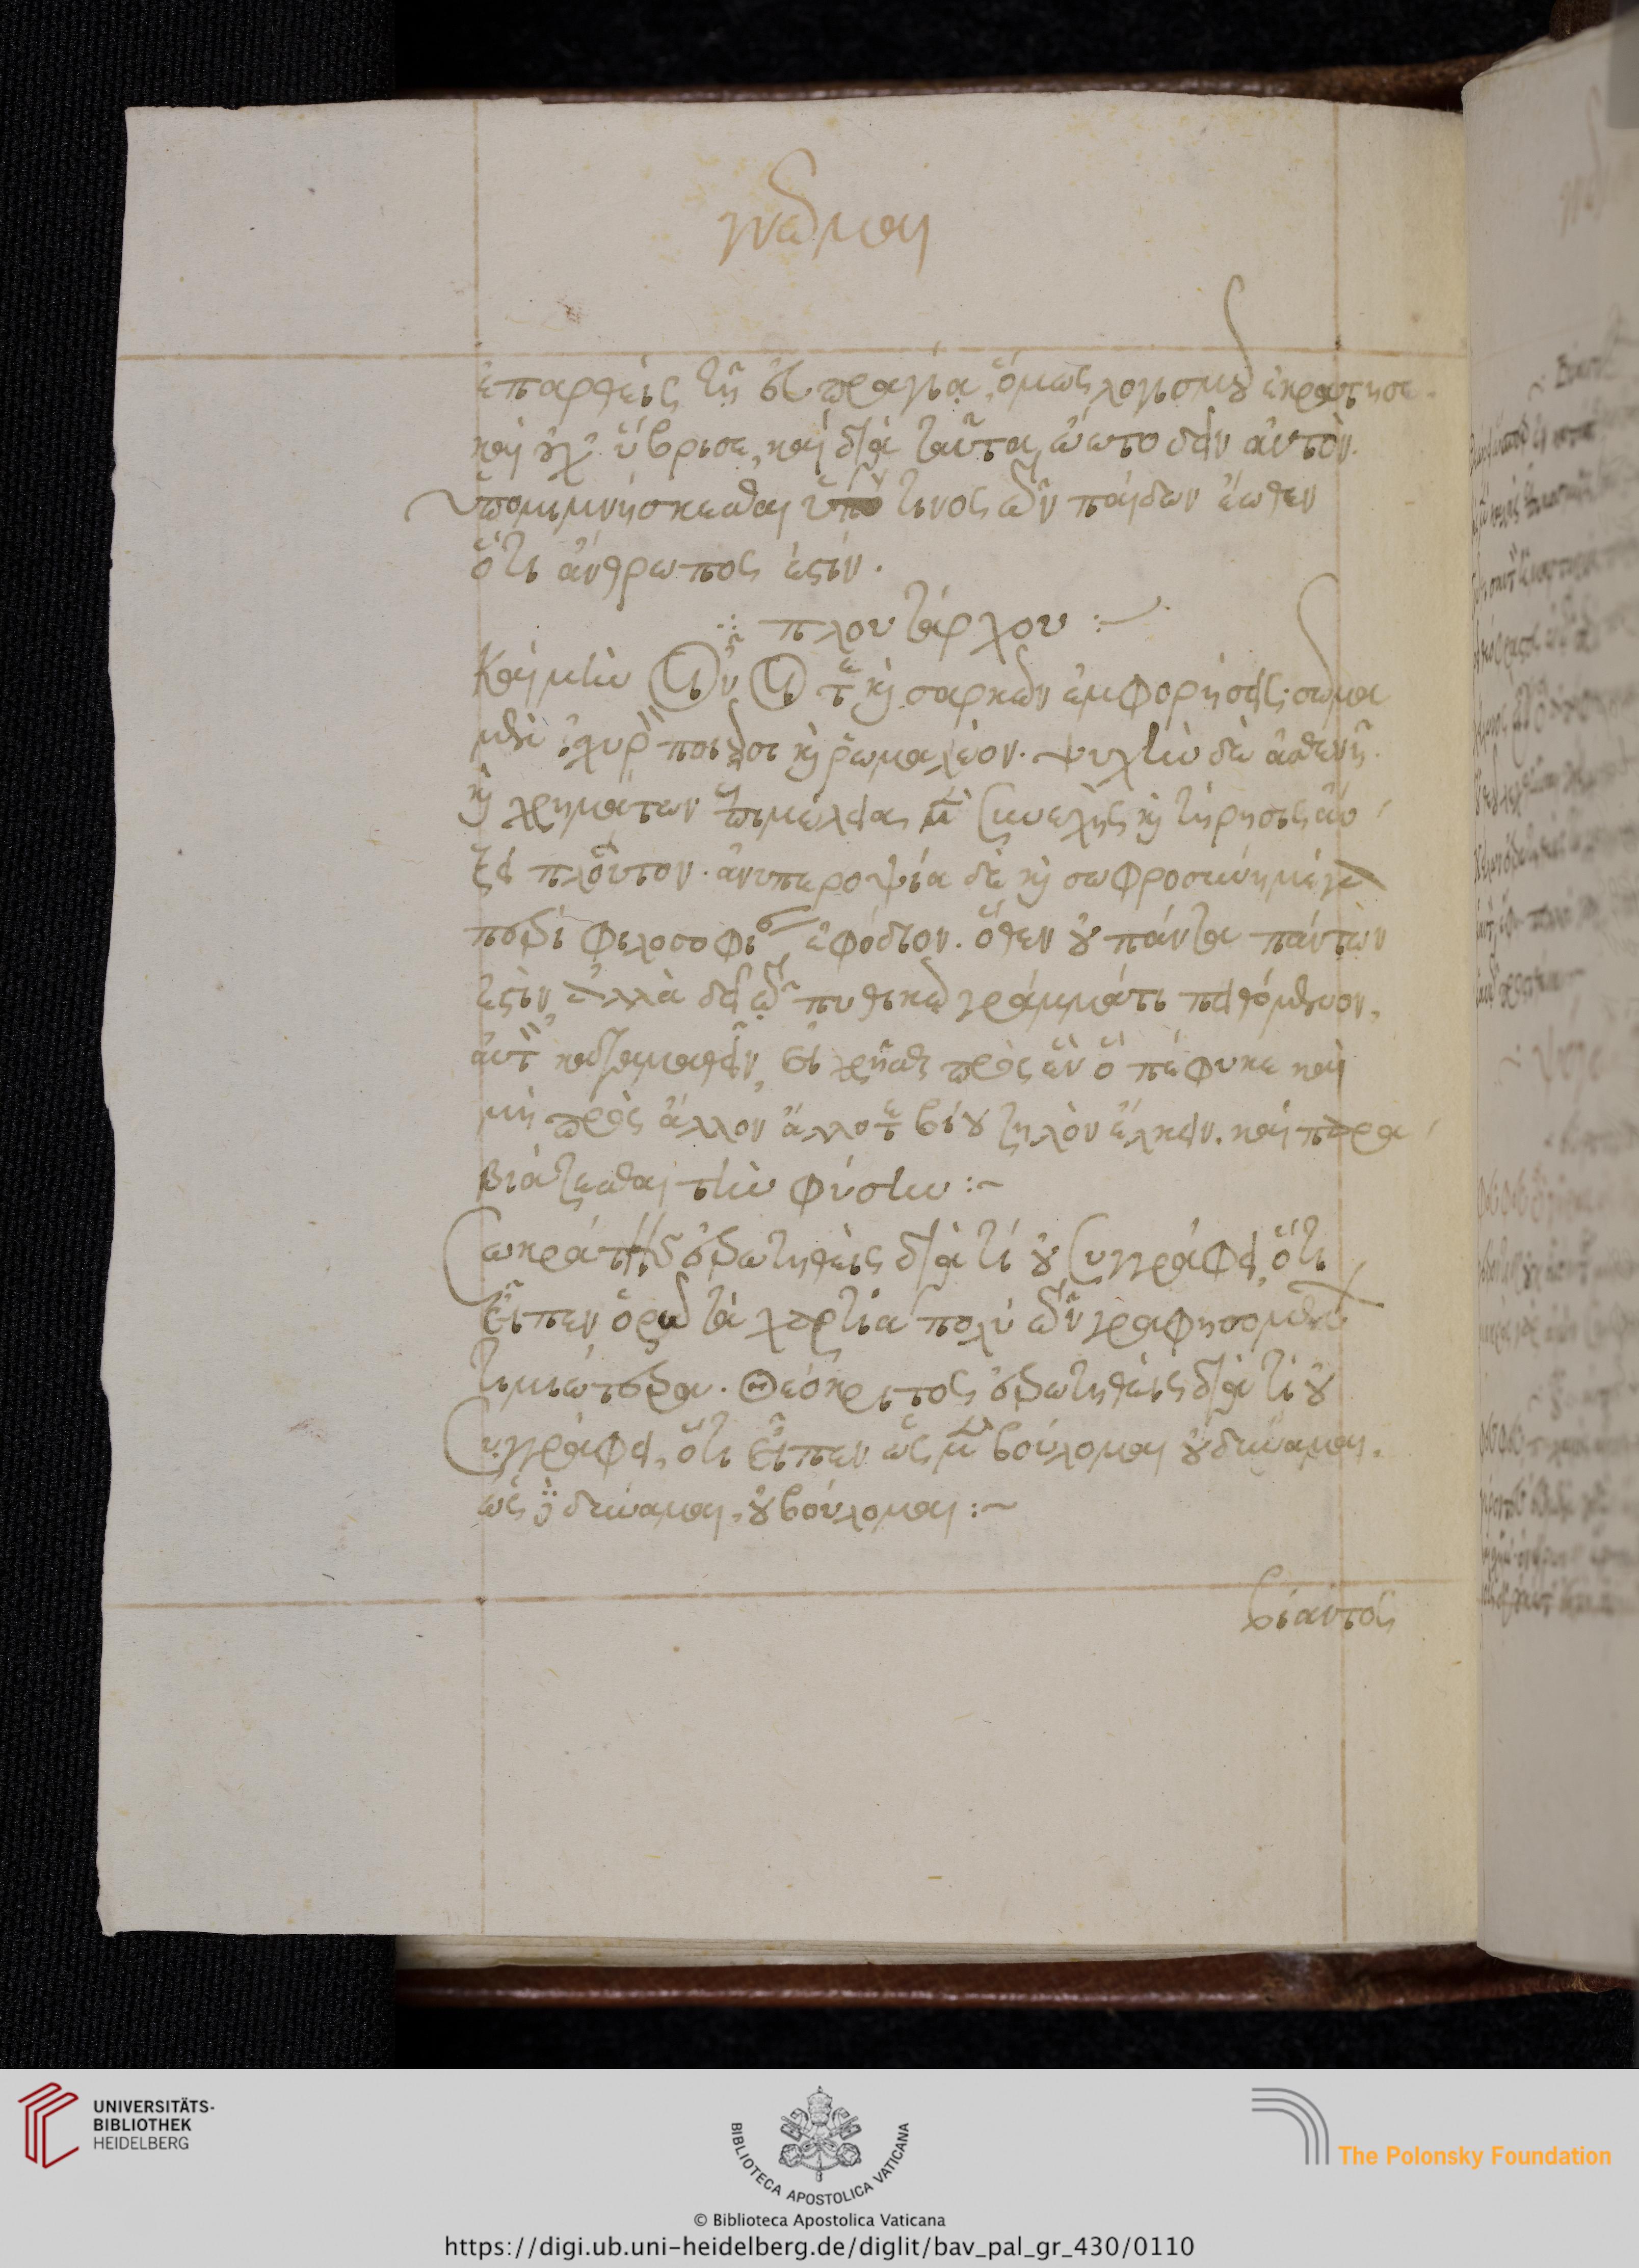 γνῶμαι
ἐπαρθεὶς τῇ εὐπραγία, ὅμως λογισμοῦ ἐκράτησε.
καὶ οὐχ᾽ ὕβρισε, καὶ διὰ ταῦτα, ὤωτο δεῖν αὐτὸν.
ὑπομιμνήσκεσθαι ὑπό τινος τῶν παίδων ἕωθεν
ὅτι ἄνθρωπος ἐστίν.
∴ πλουτάρχου :~
Καὶ μὴν οἴνου τε καὶ σαρκῶν ἐμφορήσεις· σῶμα
μὲν ἰσχυρὸν ποιοῦσι καὶ ῥωμαλέον. ψυχὴν δὲ ἀσθενῆ.
καὶ χρημάτων ἐπιμέλειας μὲν συνεχὴς καὶ τήρησις αὔ-
ξει πλοῦτον. ἀνυπεροψία δὲ καὶ σωφροσύνη μέγα
πρὸς φιλοσοφίας ἐφόδιον. ὅθεν οὐ πάντα πάντων
ἐστιν, ἀλλὰ δεῖ τῷ πυθικῷ γράμματι πειθόμενον,
αὐτὸν καταμαθεῖν, εἶ χρῆσθαι πρὸς ἓν ὃ πέφυκε καὶ
μὴ πρὸς ἄλλον ἄλλοτε βίου ζηλὸν ἕλκειν. καὶ παρα-
βιάζεσθαι τὴν φύσιν :~
Σωκράτης ἐρωτηθεὶς διὰ τί οὐ συγγράφει, ὅτι
εἶπεν ὁρῶ τὰ χαρτία πολὺ τῶν γραφησομένων
τιμιώτερα. Θεόκριτος ἐρωτηθεὶς διὰ τί οὐ
συγγράφει, ὅτι εἶπεν ὡς μὲν βούλομαι οὐ δύναμαι.
ὡς δὲ δύναμαι, οὐ βούλομαι :~
βίαντος
UNIVERSITÄTS-
BIBLIOTHEK
HEIDELBERG
BIBLIOTECA APOSTOLICA VATICANA
The Polonsky Foundation
© Biblioteca Apostolica Vaticana
https://digi.ub.uni-heidelberg.de/diglit/bav_pal_gr_430/0110